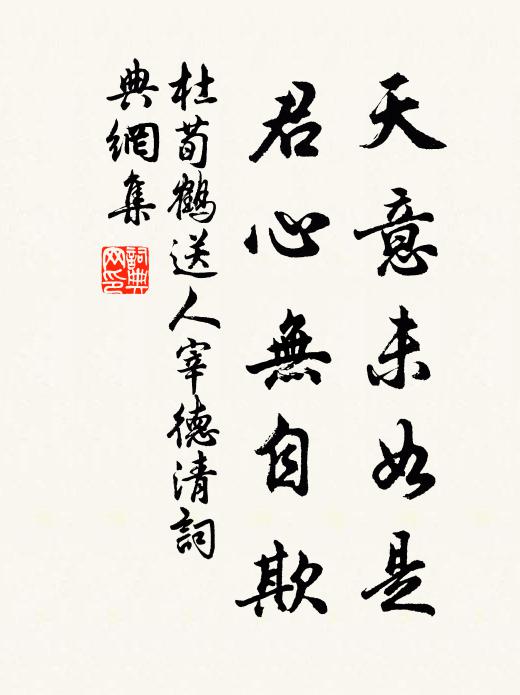 天意未如是
君心無自欺
杜荀鶴送人宰德清詞
典網集
詞典
网印